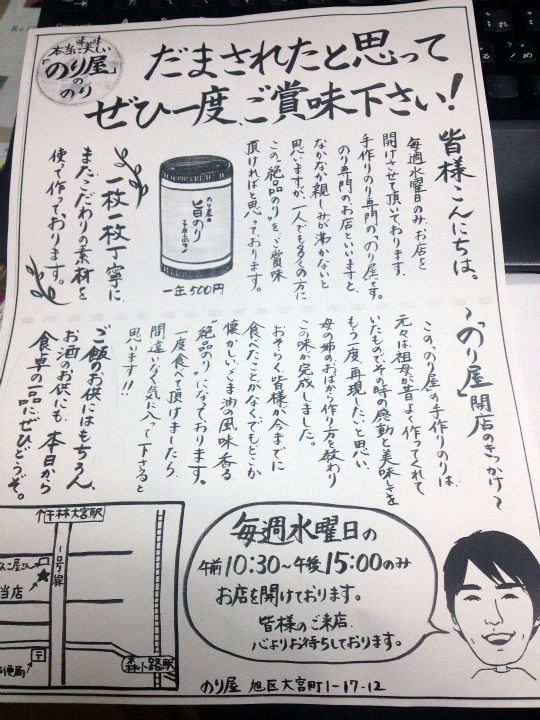 本当に美味しい
「のり屋」
の
のり
だまされたと思って
ぜひ一度、ご賞味下さい!
皆様こんにちは。
毎週水曜日のみ、お店を
開けさせて頂いております。
手作りのり専門の、「のり屋」です。
のり専門のお店といいますと、
なかなか親しみが沸かないと
思いますが、一人でも多くの方に
この、絶品のりを、ご賞味
頂ければと思っております。
のり屋の
旨のり
一缶500円
一枚一枚丁寧に、
またこだわりの素材を
使って作っております。
〜「のり屋」開店のきっかけ〜
この、「のり屋」の手作りのりは、
元々は祖母が昔よく作ってくれて
いたもので、その時の感動と美味しさを
もう一度、再現したいと思い、
母の姉のおばから作り方を教わり
この味が完成しました。
おそらく皆様が今までに
食べたことがなく、でもどこか
懐かしい、ごま油の風味香る
"絶品のり"になっております。
一度食べて頂けましたら、
間違いなく気に入って下さると
思います!!
ご飯のお供にはもちろん、
お酒のお供にも、本日から
食卓の一品にぜひどうぞ。
千林大宮駅
1号線
当店
〒
便局
森小路駅
毎週水曜日の
午前10:30〜午後15:00のみ
お店を開けております。
皆様のご来店、
心よりお待ちしております。
のり屋 旭区大宮町1-17-12